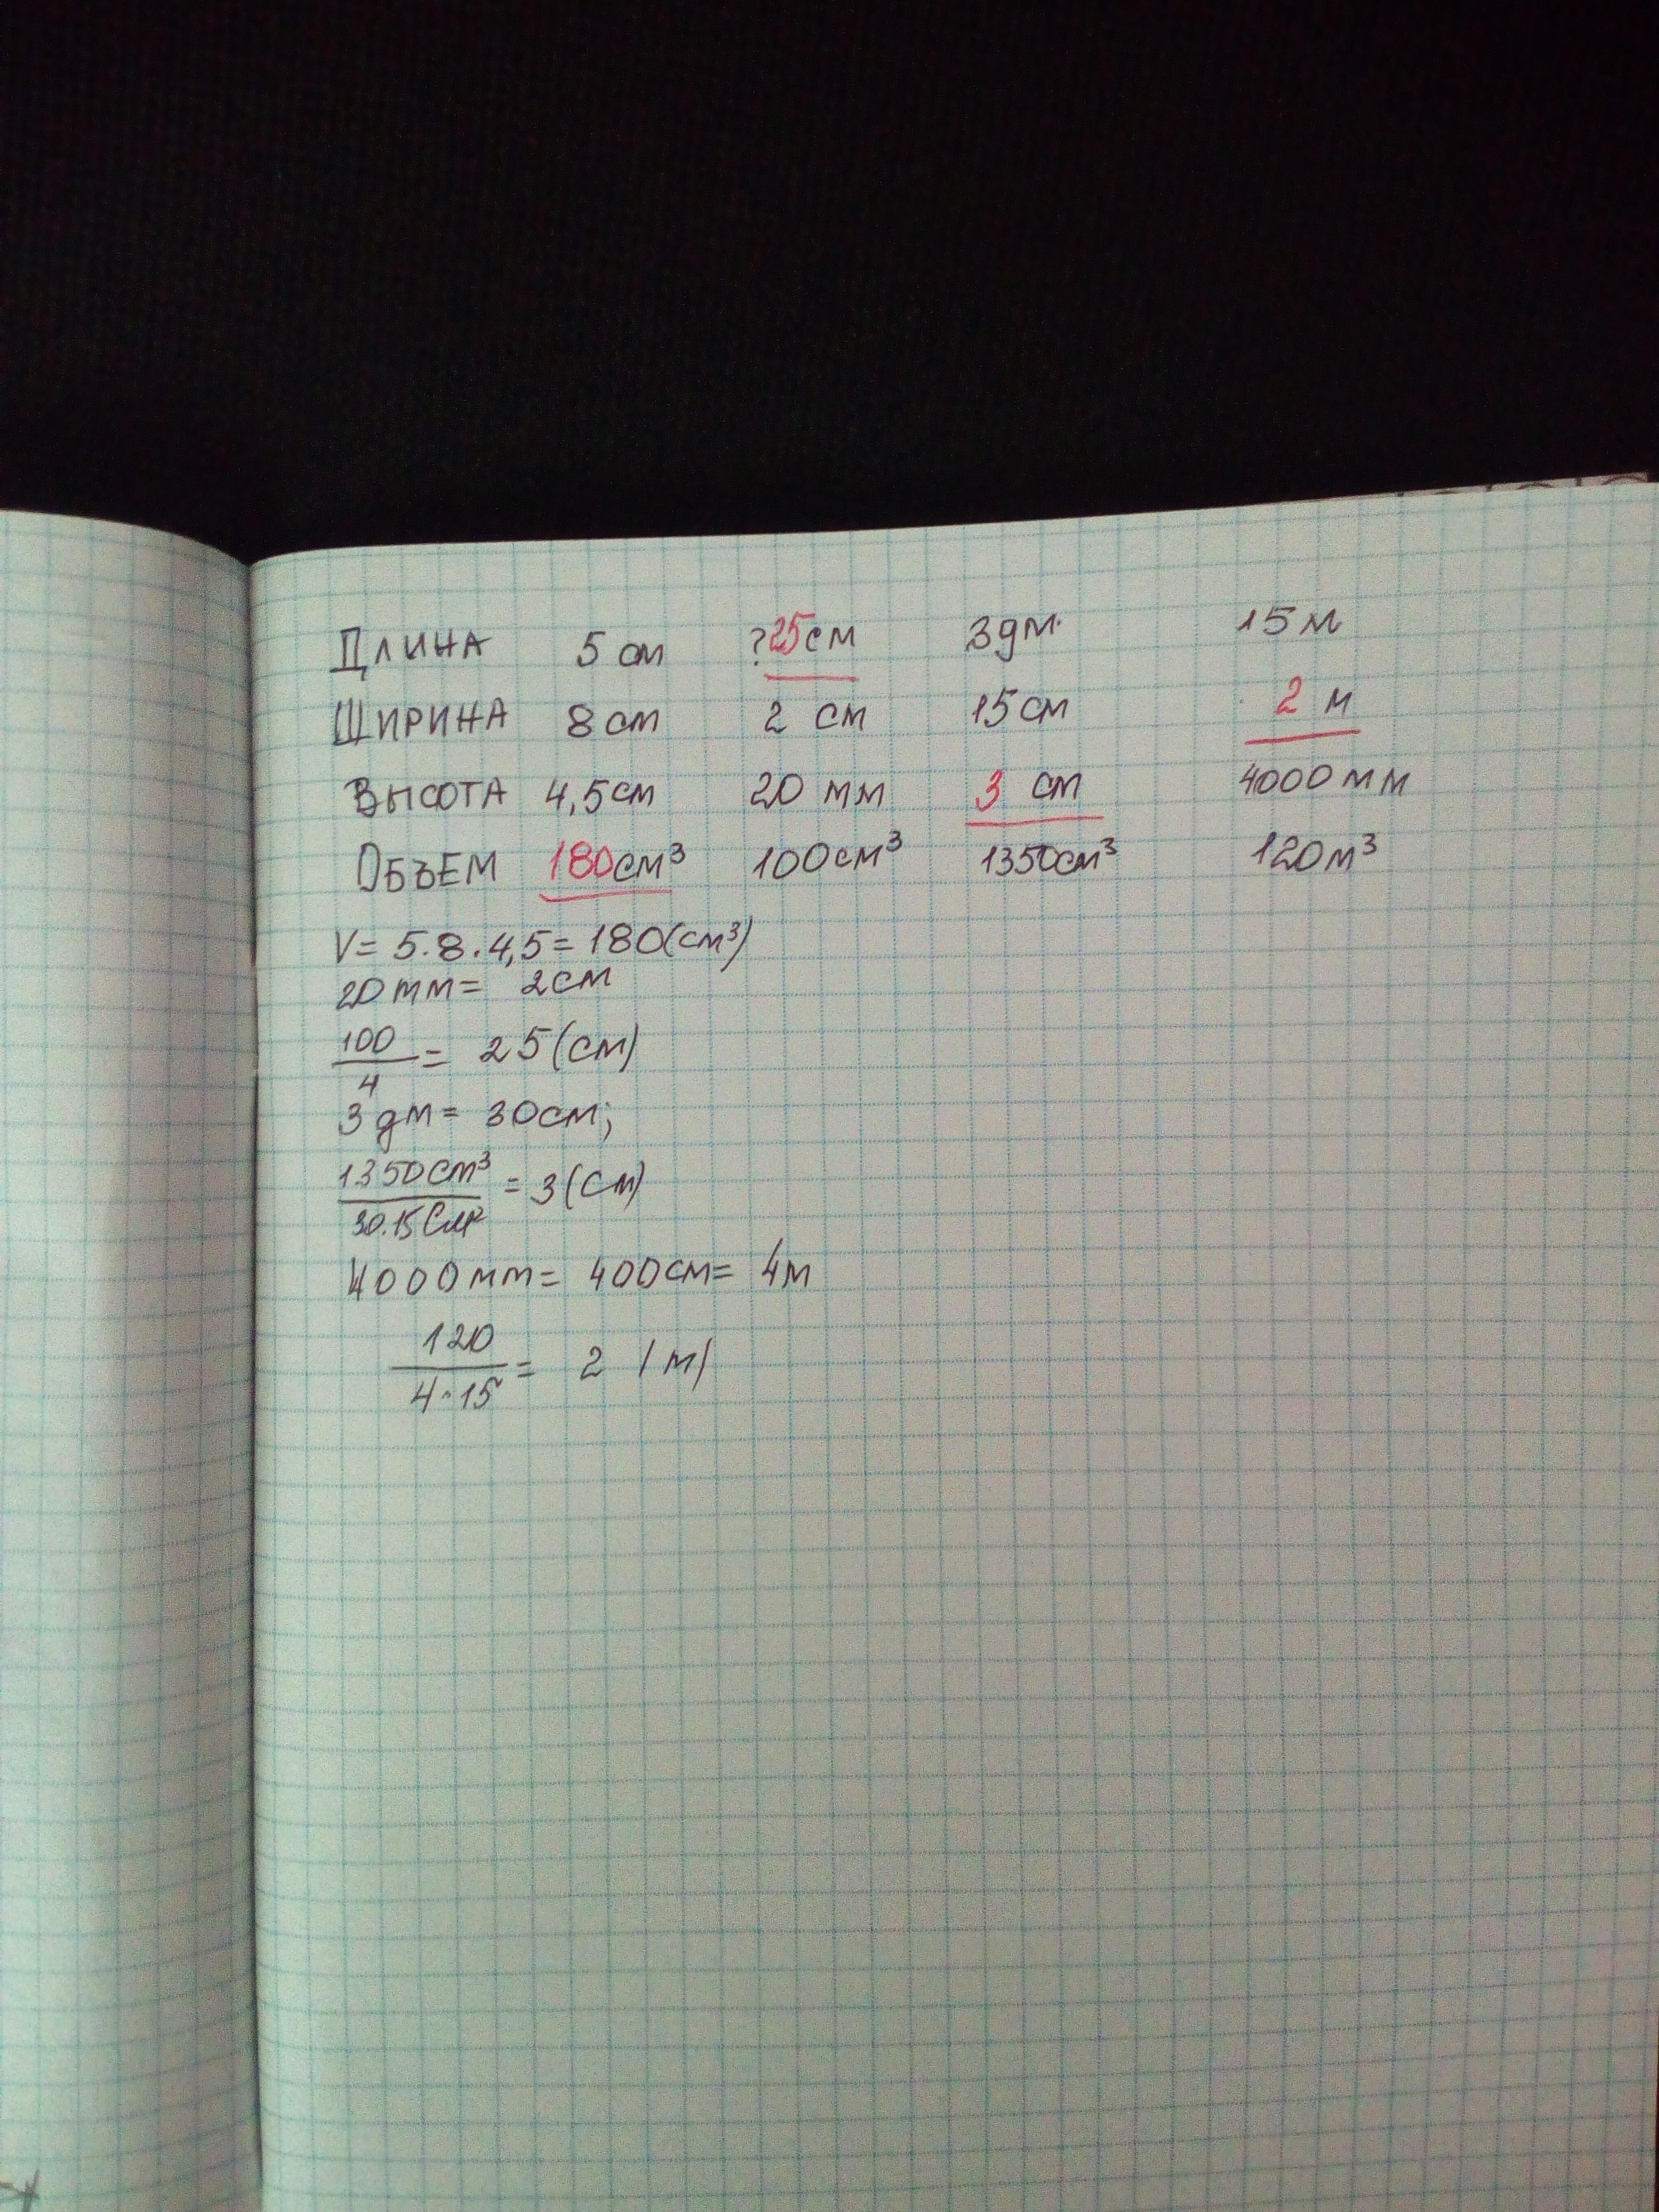 Длина 5 см ?25см 3дм. 15 м
Ширина 8 см 2 см 15 см 2 м
Высота 4,5см 20 мм 3 см 4000 мм
Объем 180см³ 100см³ 1350см³ 120м³
V= 5·8·4,5= 180(см³)
20мм= 2см
100/4 = 25(см)
3дм= 30см;
1350см³/30.15см² = 3(см)
4000мм= 400см= 4м
120/4·15 = 2 (м)